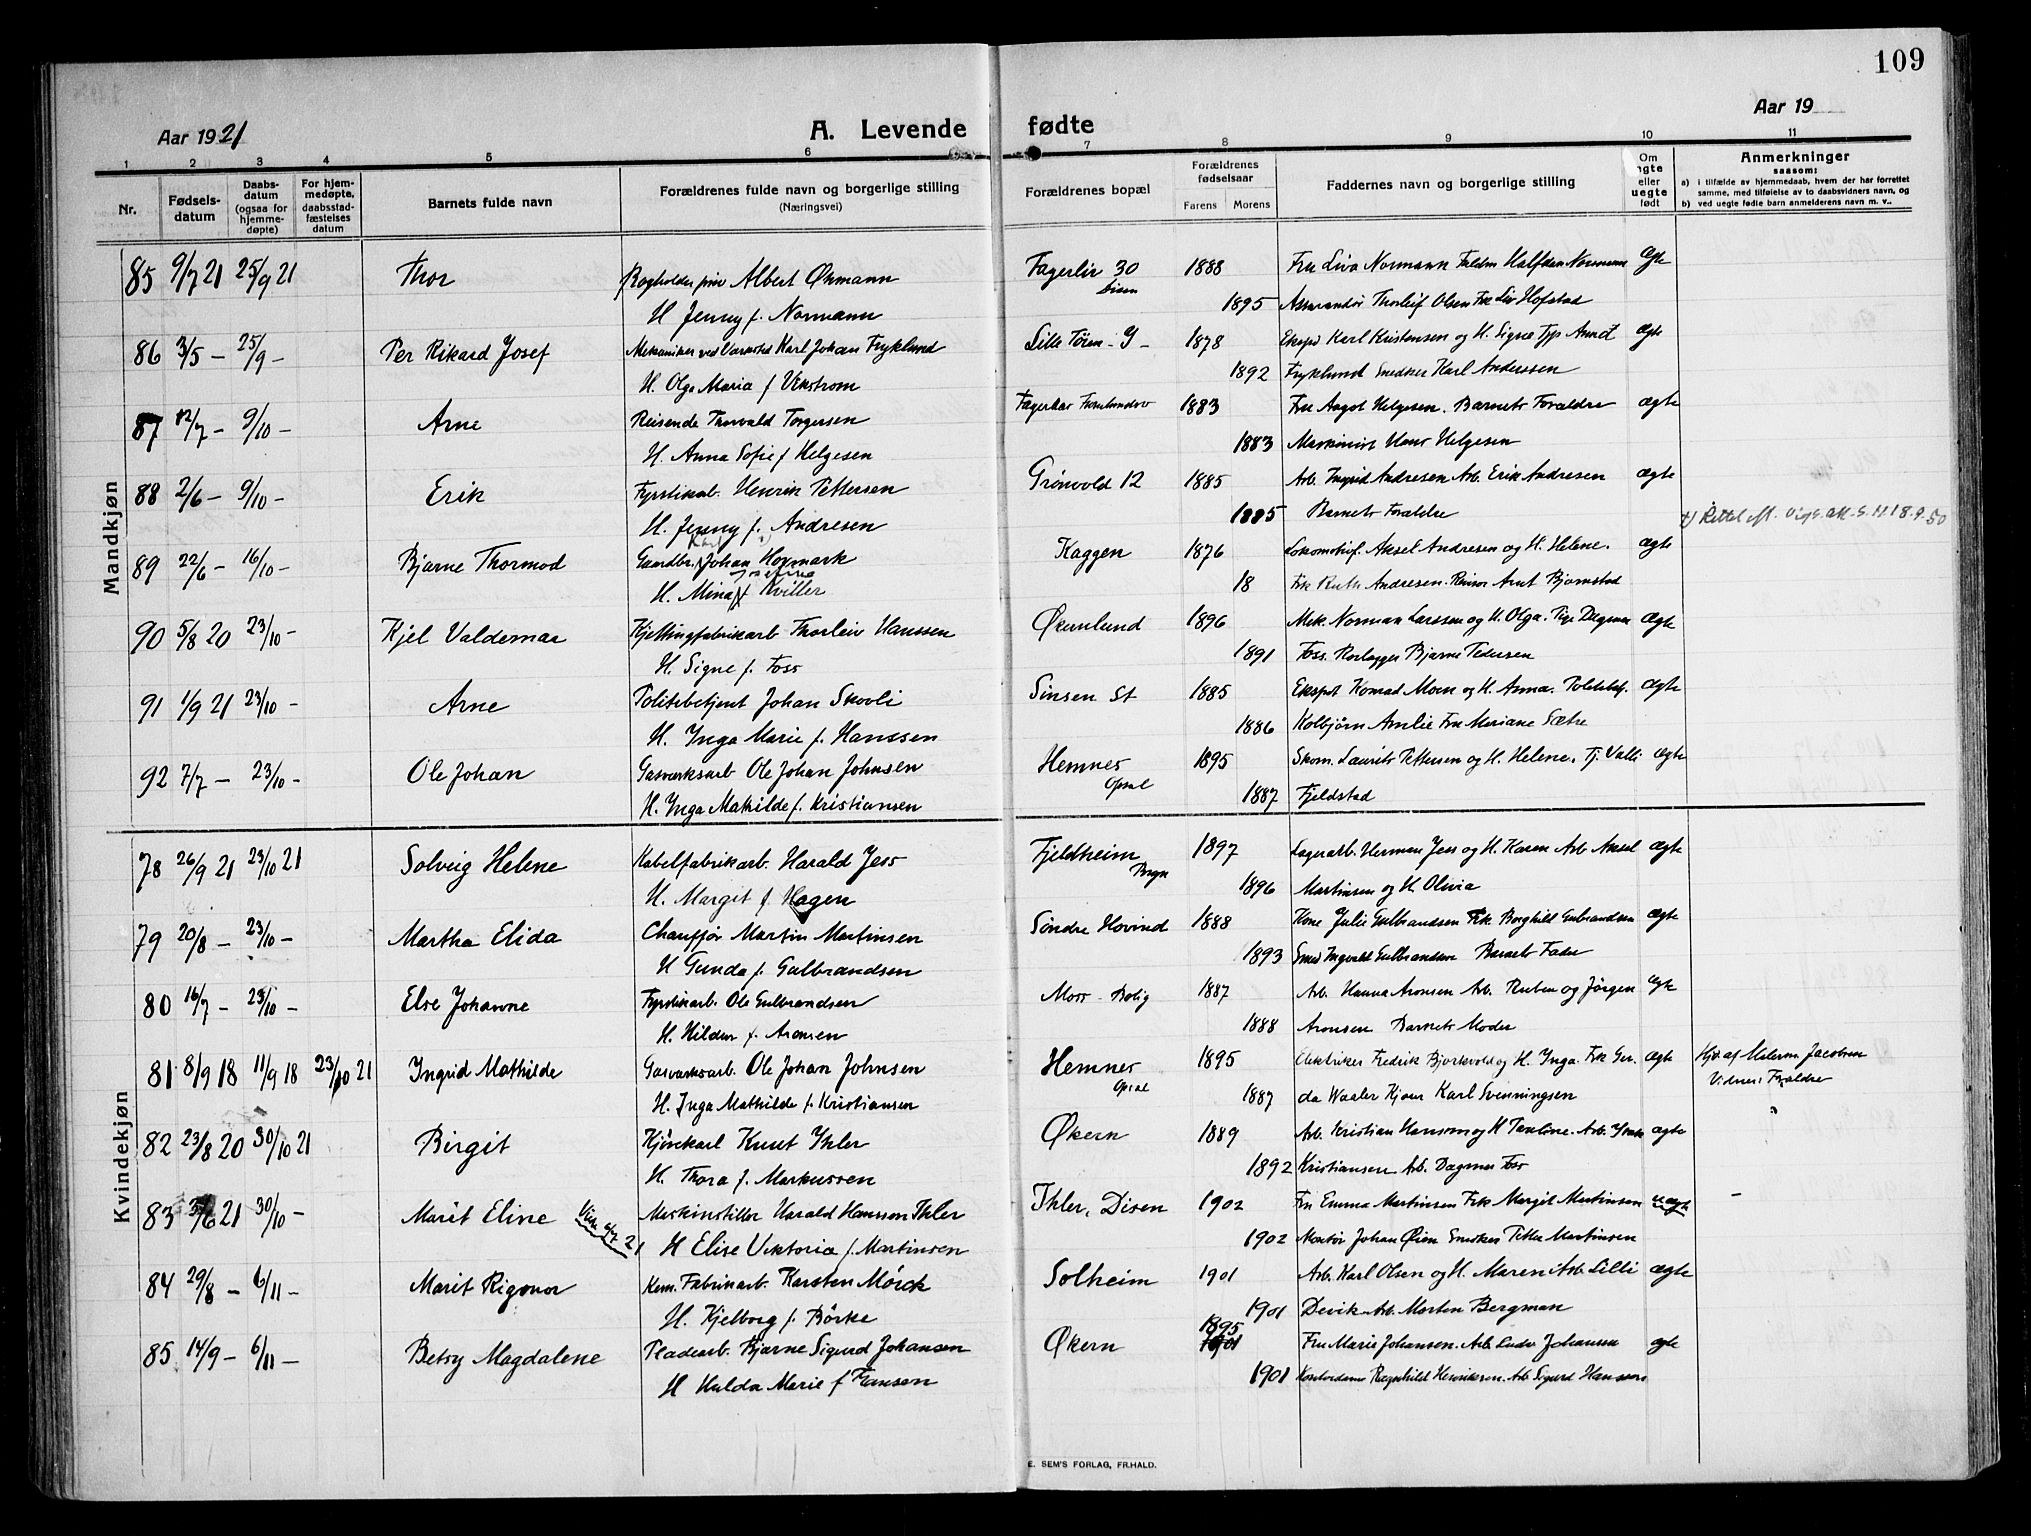 109
Aar 1921
A. Levende fødte
Aar 19
1 2 3 4 5 6 7 8 9 10 11
Nr.
Fødselsdatum
Daabsdatum (ogsaa for hjemmedøpte)
For hjemmedøpte, daabsstadfæstelses datum
Barnets fulde navn
Forældrenes fulde navn og borgerlige stilling
(Næringsvei)
Forældrenes bopæl
Forældrenes fødselsaar
Farens Morens
Faddernes navn og borgerlige stilling
Om ægte eller uegte født
Anmerkninger
saasom:
a) i tilfælde av hjemmedaab, hvem der har forrettet samme, med tilføielse av to daabsvidners navn, og
b) ved uegte fødte barn anmelderens navn m. v..
Mandkjøn
85 9/7 21 25/9 21 Thor Bogholder Albert Øhmann Fagerliv 30 1888 Fru Liva Normann Halfdan Normann ægte
H. Jenny f. Normann Disen 1895 Assurandør Thorleif Olsen Frk Liv Hofstad
86 3/5 – 25/9 – Per Rikard Josef Mekaniker ved Værksted Karl Johan Fryklund Lille Tøien - G - 1878 Eksped Karl Kristensen og H. Signe Typ Arndt ægte
H. Olga Maria f Vekstrom 1892 Fryklund Snedker Karl Andresen
87 12/7 – 9/10 – Arne Reisende Thorvald Torgersen 1883 Fru Aagot Helgesen. Barnets Forældre ægte
H. Anna Sofie f Helgesen 1883 Maskinist Hans Helgesen
88 2/6 – 9/10 – Erik Fyrstikarb. Henrik Pettersen Grønvold 12 1885 Arb. Ingrid Andresen Arb. Erik Andresen ægte
H. Jenny f. Andresen 1885 Barnets Forældre
89 22/6 – 16/10 – Bjarne Thormod Gaardbr. Karl Johan Hovmark Kaggen 1876 Lokomotivf. Aksel Andresen og H. Helene. ægte
H. Mina Josefine f Kviller 18 Frk Ruth Andresen. Arnt Bjørnstad
x) Rettet 18.9.50
90 5/8 20 23/10 – Kjel Valdemar Kjettingfabrikarb Thorleiv Hanssen Økernlund 1896 Mek. Norman Larssen og H. Olga. Pige Dagmar ægte
H. Signe f. Foss 1891 Foss. Rørlægger Bjarne Pedersen
91 1/9 21 23/10 – Arne Politibetjent Johan Skovli Sinsen St 1885 Ekspst Konrad Moen og H. Anna. Politibtj. ægte
H. Inga Marie f. Hanssen 1886 Kolbjørn Amlie Fru Meriane Sætre
92 7/7 – 23/10 – Ole Johan Gasværksarb Ole Johan Johnsen Hemnes 1895 Skom. Laurits Pettersen og H. Helene. Tj. Valli ægte
H. Inga Mathilde f. Kristiansen Opsal 1887 Fjeldstad
Kvindekjøn
78 26/9 21 23/10 21 Solveig Helene Kabelfabrikarb. Harald Jess Fjeldheim 1897 Lagerarb. Herman Jess og H. Karen Arb Aksel ægte
H. Margit f. Hagen Bryn 1896 Martinsen og H. Olivia
79 20/8 – 23/10 – Martha Elida Chauffør Martin Martinsen Søndre Hovind 1888 Kone Julie Gulbrandsen Frk Borghild Gulbrandsen ægte
H Gunda f. Gulbrandsen 1893 Smed Ingvald Gulbrandsen Barnets Fader
80 16/7 – 23/10 – Else Johanne Fyrstikarb. Ole Gulbrandsen Moss - Bolig 1887 Arb. Hanna Aronsen Arb. Ruben og Jørgen ægte
H. Hildur f. Aronsen 1888 Aronsen Barnets Moder
81 8/9 18 11/9 18 23/10 21 Ingrid Mathilde Gasværksarb. Ole Johan Johnsen Hemnes 1895 Elektriker Fredrik Bjørkvold og H. Inga. Frk Ger. ægte Hjd. af Jacobsen
H. Inga Mathilde f. Kristiansen Opsal 1887 da Waaler Kjøsn Karl Svenningsen Vidner: Forældre
82 23/8 20 30/10 21 Birgit Kjørekarl Knut Ihler Økern 1889 Arb. Kristian Hansen og H Pauline. Arb. ægte
H. Thora f. Markussen 1892 Kristiansen Arb. Dagmar Foss
83 5/6 21 30/10 – Marit Eline Maskinstiller Harald Hansson Ihler Ihler, Disen 1902 Fru Emma Martinsen Frk Margit Martinsen uægte –
H Elise Viktoria f. Martinsen 1902 Montør Johan Øien Snedker Petter Martinsen
84 29/8 – 6/11 – Marit Rigmor Kem. Fabrikarb. Karsten Mørck Solheim 1901 Arb. Karl Olsen og H. Maren Arb. Lilli ægte
H. Kjelborg f. Børke 1901 Devik. Arb. Morten Bergman
85 14/9 – 6/11 – Betsy Magdalene Pladearb. Bjarne Sigurd Johansen Økern 1895 1901 Fru Marie Johansen. Arb. Johansen ægte
H Hulda Marie f Fransen 1901 Kontordame Ragnhild Henriksen. Arb Sigurd Hanssen
E. SEM'S FORLAG, FR.HALD.